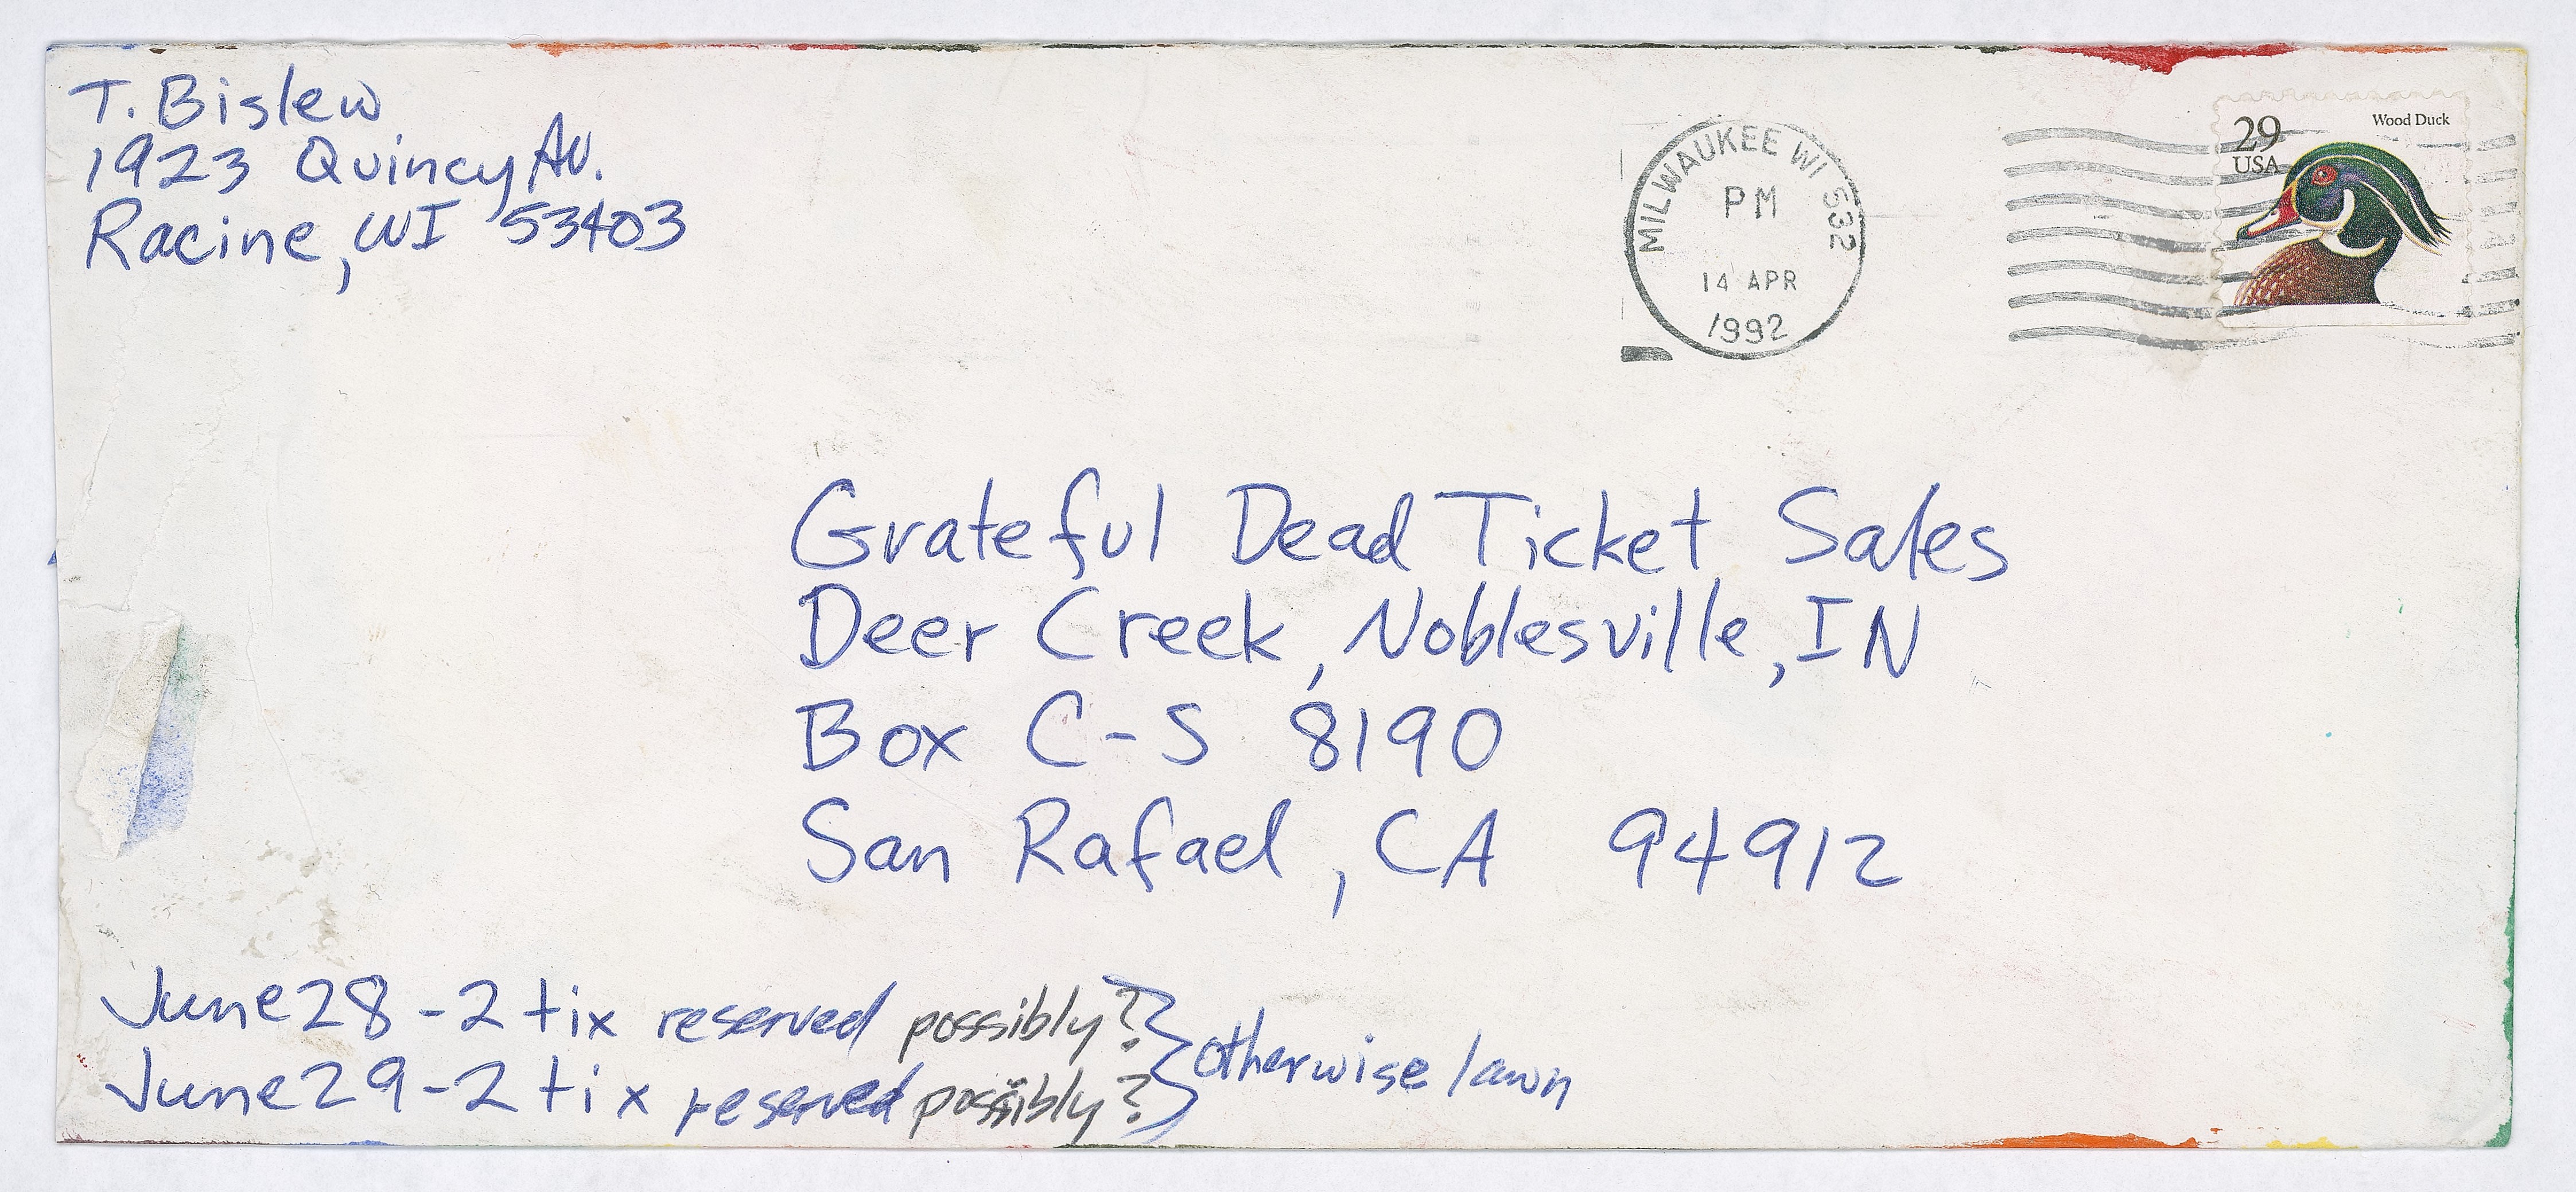 T. Bislew
1923 Quincy Av.
Racine, WI 53403
MILWAUKEE WI 532
PM
14 APR
1992
29
USA
Wood Duck
Grateful Dead Ticket Sales
Deer Creek, Noblesville, IN
Box C-S 8190
San Rafael, CA 94912
June 28 - 2 tix reserved possibly?
June 29 - 2 tix reserved possibly?
otherwise lawn